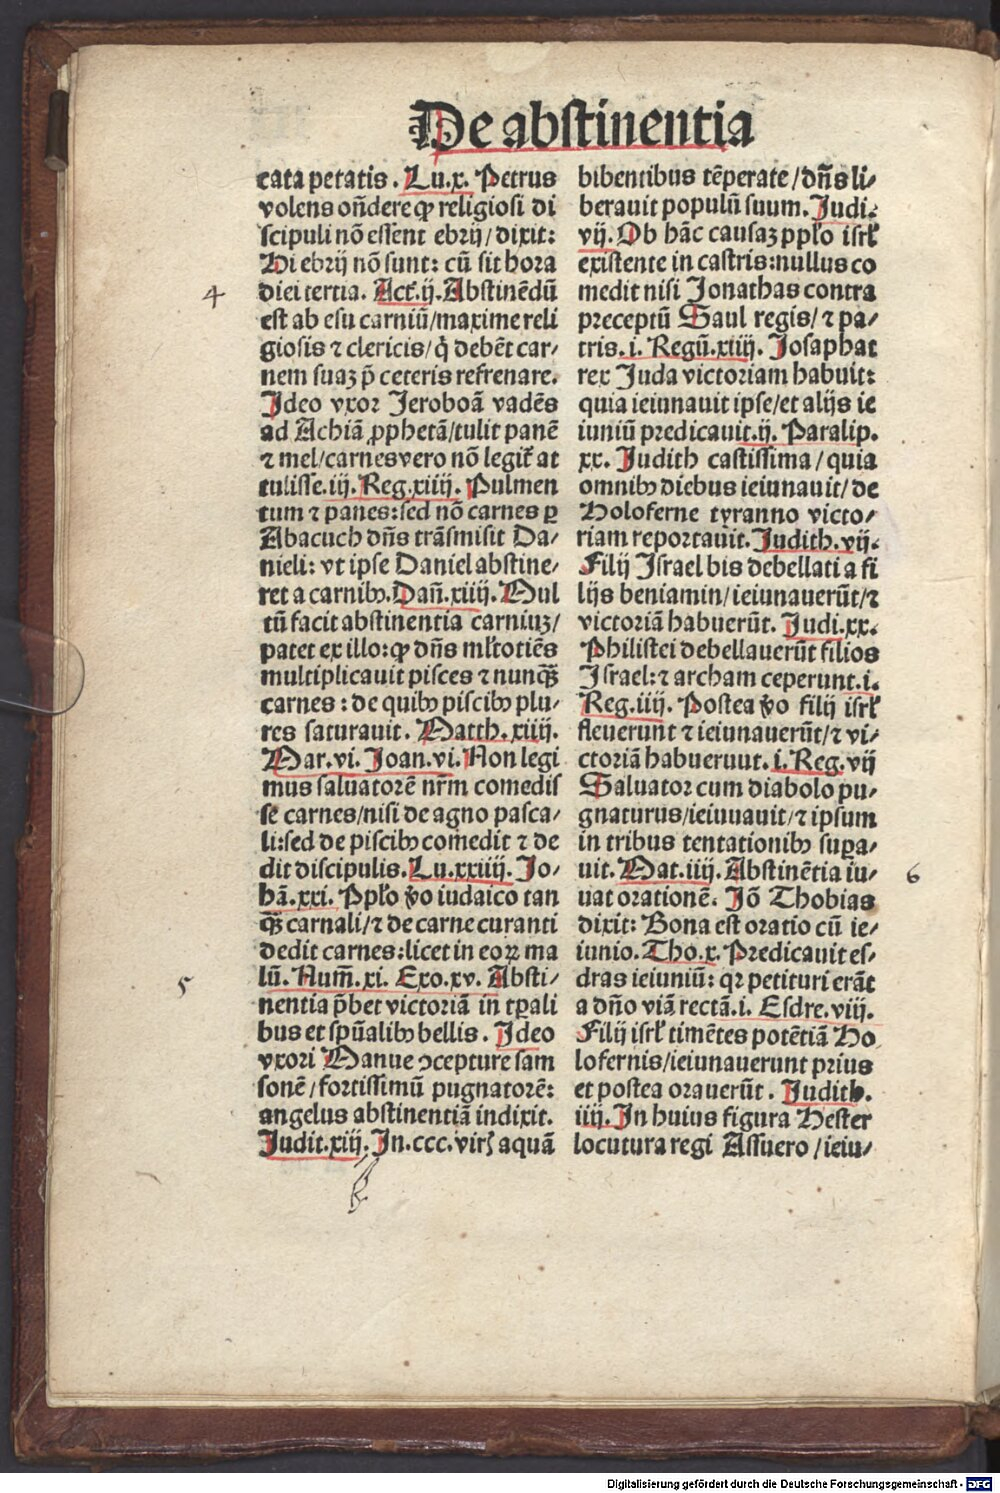 De abstinentia
cata petatis. Lu.x. Petrus
volens oñdere ꝙ religiosi di
scipuli nō essent ebrij/dixit:
Hi ebrij nō sunt: cū sit hora
4
diei tertia. Act̃.ij. Abstinēdū
est ab esu carniū/maxime reli
giosis ⁊ clericis/q̇ debēt car/
nem suaꝫ p̄ ceteris refrenare.
Ideo vxor Jeroboā vadēs
ad Achiā ꝓphetā/tulit panē
⁊ mel/carnes vero nō legit̃ at
tulisse.iij.Reg.xiiij. Pulmen
tum ⁊ panes:sed nō carnes ꝑ
Abacuch dñs trāsmisit Da/
nieli: vt ipse Daniel abstine/
ret a carnibꝰ. Dañ.xiiij. Mul
tū facit abstinentia carniuꝫ/
patet ex illo:ꝙ dñs ml̃totiēs
multiplicauit pisces ⁊ nunꝙ̃
carnes: de quibꝰ piscibꝰ plu/
res saturauit. Matth.xiiij.
Mar.vi. Joan.vi. Non legi
mus saluatorē nr̃m comedis
se carnes/nisi de agno pasca/
li:sed de piscibꝰ comedit ⁊ de
dit discipulis. Lu.xxiiij. Jo/
hā.xxi. Ppl̃o ṽo iudaico tan
ꝙ̃ carnali/⁊ de carne curanti
dedit carnes:licet in eoꝝ ma
5
lū. Num̃.xi. Exo.xv. Absti/
nentia p̄bet victoriā in tꝑali
bus et spũalibꝰ bellis. Ideo
vxori Manue ↄcepture sam
sonē/fortissimū pugnatorē:
angelus abstinentiā indixit.
Judit.xiij. In.ccc. virꝭ aquā
bibentibus tēperate/dñs li/
berauit populū suum. Judi.
vij. Ob hāc causaꝫ ppl̃o isrl̃
existente in castris:nullus co
medit nisi Jonathas contra
preceptū Saul regis/⁊ pa/
tris.i. Regū.xiiij. Josaphat
rex Juda victoriam habuit:
quia ieiunauit ipse/et alijs ie
iuniū predicauit.ij. Paralip.
xx. Judith castissima/quia
omnibꝰ diebus ieiunauit/de
Holoferne tyranno victo/
riam reportauit. Judith.vij.
Filij Israel bis debellati a fi
lijs beniamin/ieiunauerūt/⁊
victoriā habuerūt. Judi.xx.
Philistei debellauerūt filios
Israel:⁊ archam ceperunt.i.
Reg.iiij. Postea ṽo filij isrl̃
fleuerunt ⁊ ieiunauerūt/⁊ vi/
ctoriā habueruut.i.Reg.vij
Saluator cum diabolo pu/
gnaturus/ieiuuauit/⁊ ipsum
in tribus tentationibꝰ suꝑa/
uit. Mat.iiij. Abstinētia iu/
6
uat orationē. Jō Thobias
dixit: Bona est oratio cū ie/
iunio. Tho.x. Predicauit es/
dras ieiuniū: qꝛ petituri erāt
a dño viā rectā.i. Esdre.viij.
Filij isrl̃ timētes potētiā Ho
lofernis/ieiunauerunt prius
et postea orauerūt. Judith.
iiij. In huius figura Hester
locutura regi Assuero/ieiu/
Digitalisierung gefördert durch die Deutsche Forschungsgemeinschaft - DFG